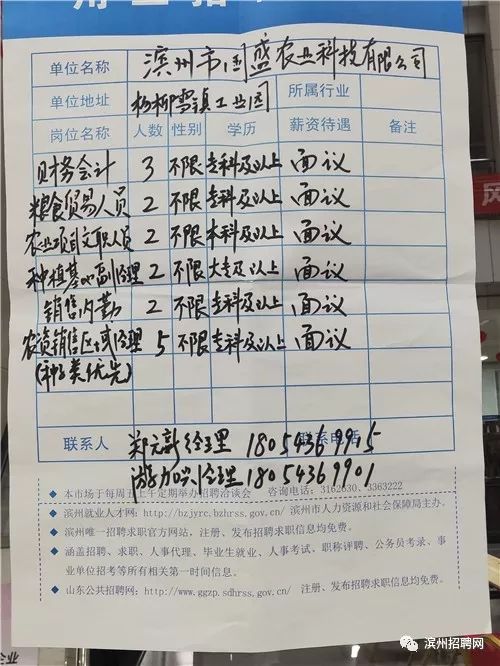 用工招
单位名称 滨州市国盛农业科技有限公司
单位地址 杨柳雪镇工业园 所属行业
岗位名称 人数 性别 学历 薪资待遇 备注
财务会计 3 不限 专科及以上 面议
粮食贸易人员 2 不限 专科及以上 面议
农业项目文职人员 2 不限 本科及以上 面议
种植基地副经理 2 不限 大专及以上 面议
销售内勤 2 不限 专科及以上 面议
农资销售区域经理 5 不限 专科及以上 面议
(种子类优先)
联系人 郑元新经理 联系电话
游加兴经理 18054369901
◆ 本市场于每周五上午定期举办招聘洽谈会 咨询电话:3162630、3363222
◆ 滨州就业人才网:http://bzjyrc.bzhrss.gov.cn/ 滨州市人力资源和社会保障局主办。
◆ 滨州唯一招聘求职官方网站,注册、发布招聘求职信息均免费。
◆ 涵盖招聘、求职、人事代理、毕业生就业、人事考试、职称评聘、公务员考录、事
业单位招考等所有相关第一时间信息。
◆ 山东公共招聘网:http://www.ggzp.sdhrss.gov.cn/ 注册、发布招聘求职信息均免费。
滨州招聘网